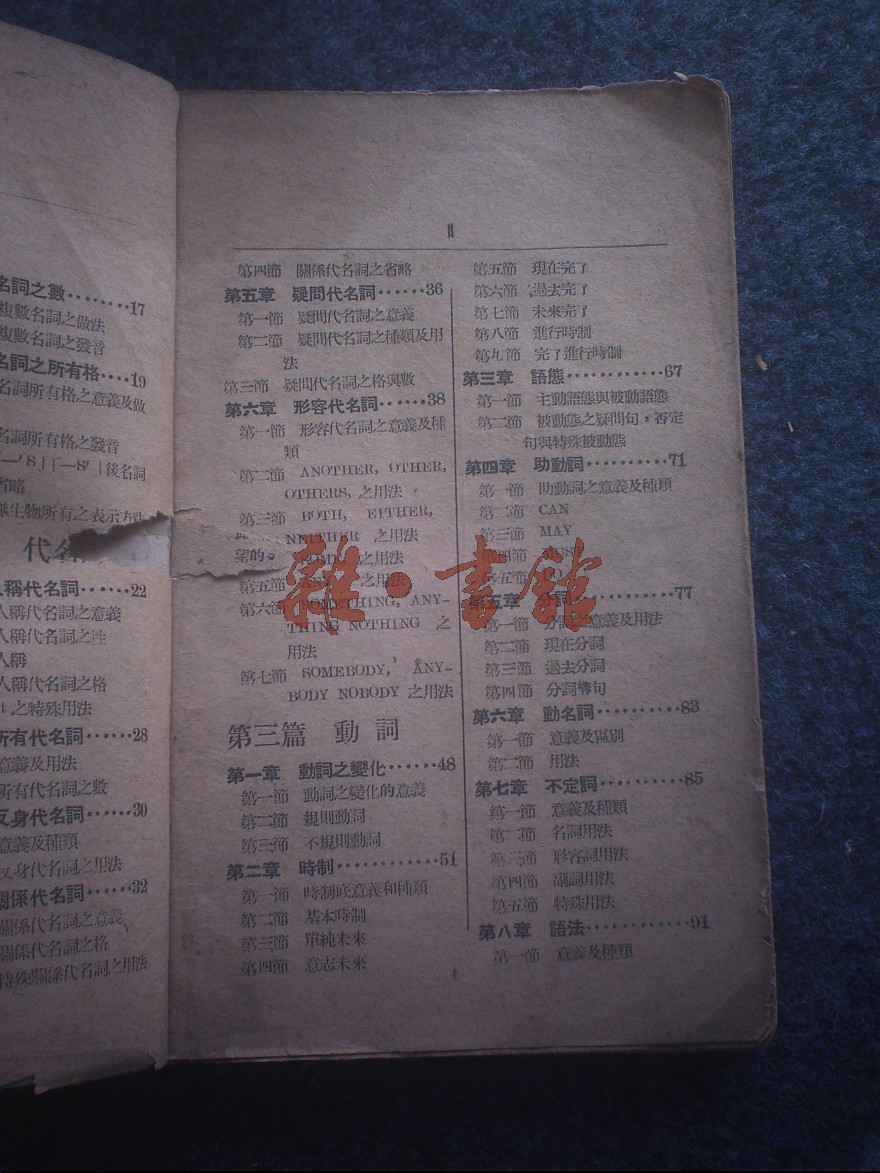 名詞之數········17
複數名詞之做法
複數名詞之發音
名詞之所有格····19
名詞所有格之意義及做
名詞所有格之發音
「—'S」「—S'」後名詞
省略
無生物所有之表示方法
代名
人稱代名詞······22
人稱代名詞之意義
人稱代名詞之性
人稱
人稱代名詞之格
It 之特殊用法
所有代名詞······28
意義及用法
所有代名詞之數
反身代名詞······30
意義及種類
反身代名詞之用法
關係代名詞······32
關係代名詞之意義
關係代名詞之格
特殊關係代名詞之用法
II
第四節 關係代名詞之省略
第五章 疑問代名詞······36
第一節 疑問代名詞之意義
第二節 疑問代名詞之種類及用
法
第三節 疑問代名詞之格與數
第六章 形容代名詞······38
第一節 形容代名詞之意義及種
類
第二節 ANOTHER, OTHER,
OTHERS, 之用法
第三節 BOTH, EITHER,
NEITHER 之用法
望的。 SOME 之用法
第五節 ANY 之用法
第六節 SOMETHING, ANY-
THING NOTHING 之
用法
第七節 SOMEBODY, ANY-
BODY NOBODY 之用法
第三篇 動詞
第一章 動詞之變化······48
第一節 動詞之變化的意義
第二節 規則動詞
第三節 不規則動詞
第二章 時制············51
第一節 時制底意義和種類
第二節 基本時制
第三節 單純未來
第四節 意志未來
第五節 現在完了
第六節 過去完了
第七節 未來完了
第八節 進行時制
第九節 完了進行時制
第三章 語態············67
第一節 主動語態與被動語態
第二節 被動態之疑問句，否定
句與特殊被動態
第四章 助動詞··········71
第一節 助動詞之意義及種類
第二節 CAN
第三節 MAY
第四節 MUST
第五節
第五章 分詞············77
第一節 分詞之意義及用法
第二節 現在分詞
第三節 過去分詞
第四節 分詞導句
第六章 動名詞··········83
第一節 意義及區別
第二節 用法
第七章 不定詞··········85
第一節 意義及種類
第二節 名詞用法
第三節 形容詞用法
第四節 副詞用法
第五節 特殊用法
第八章 語法············91
第一節 意義及種類
雜·書館